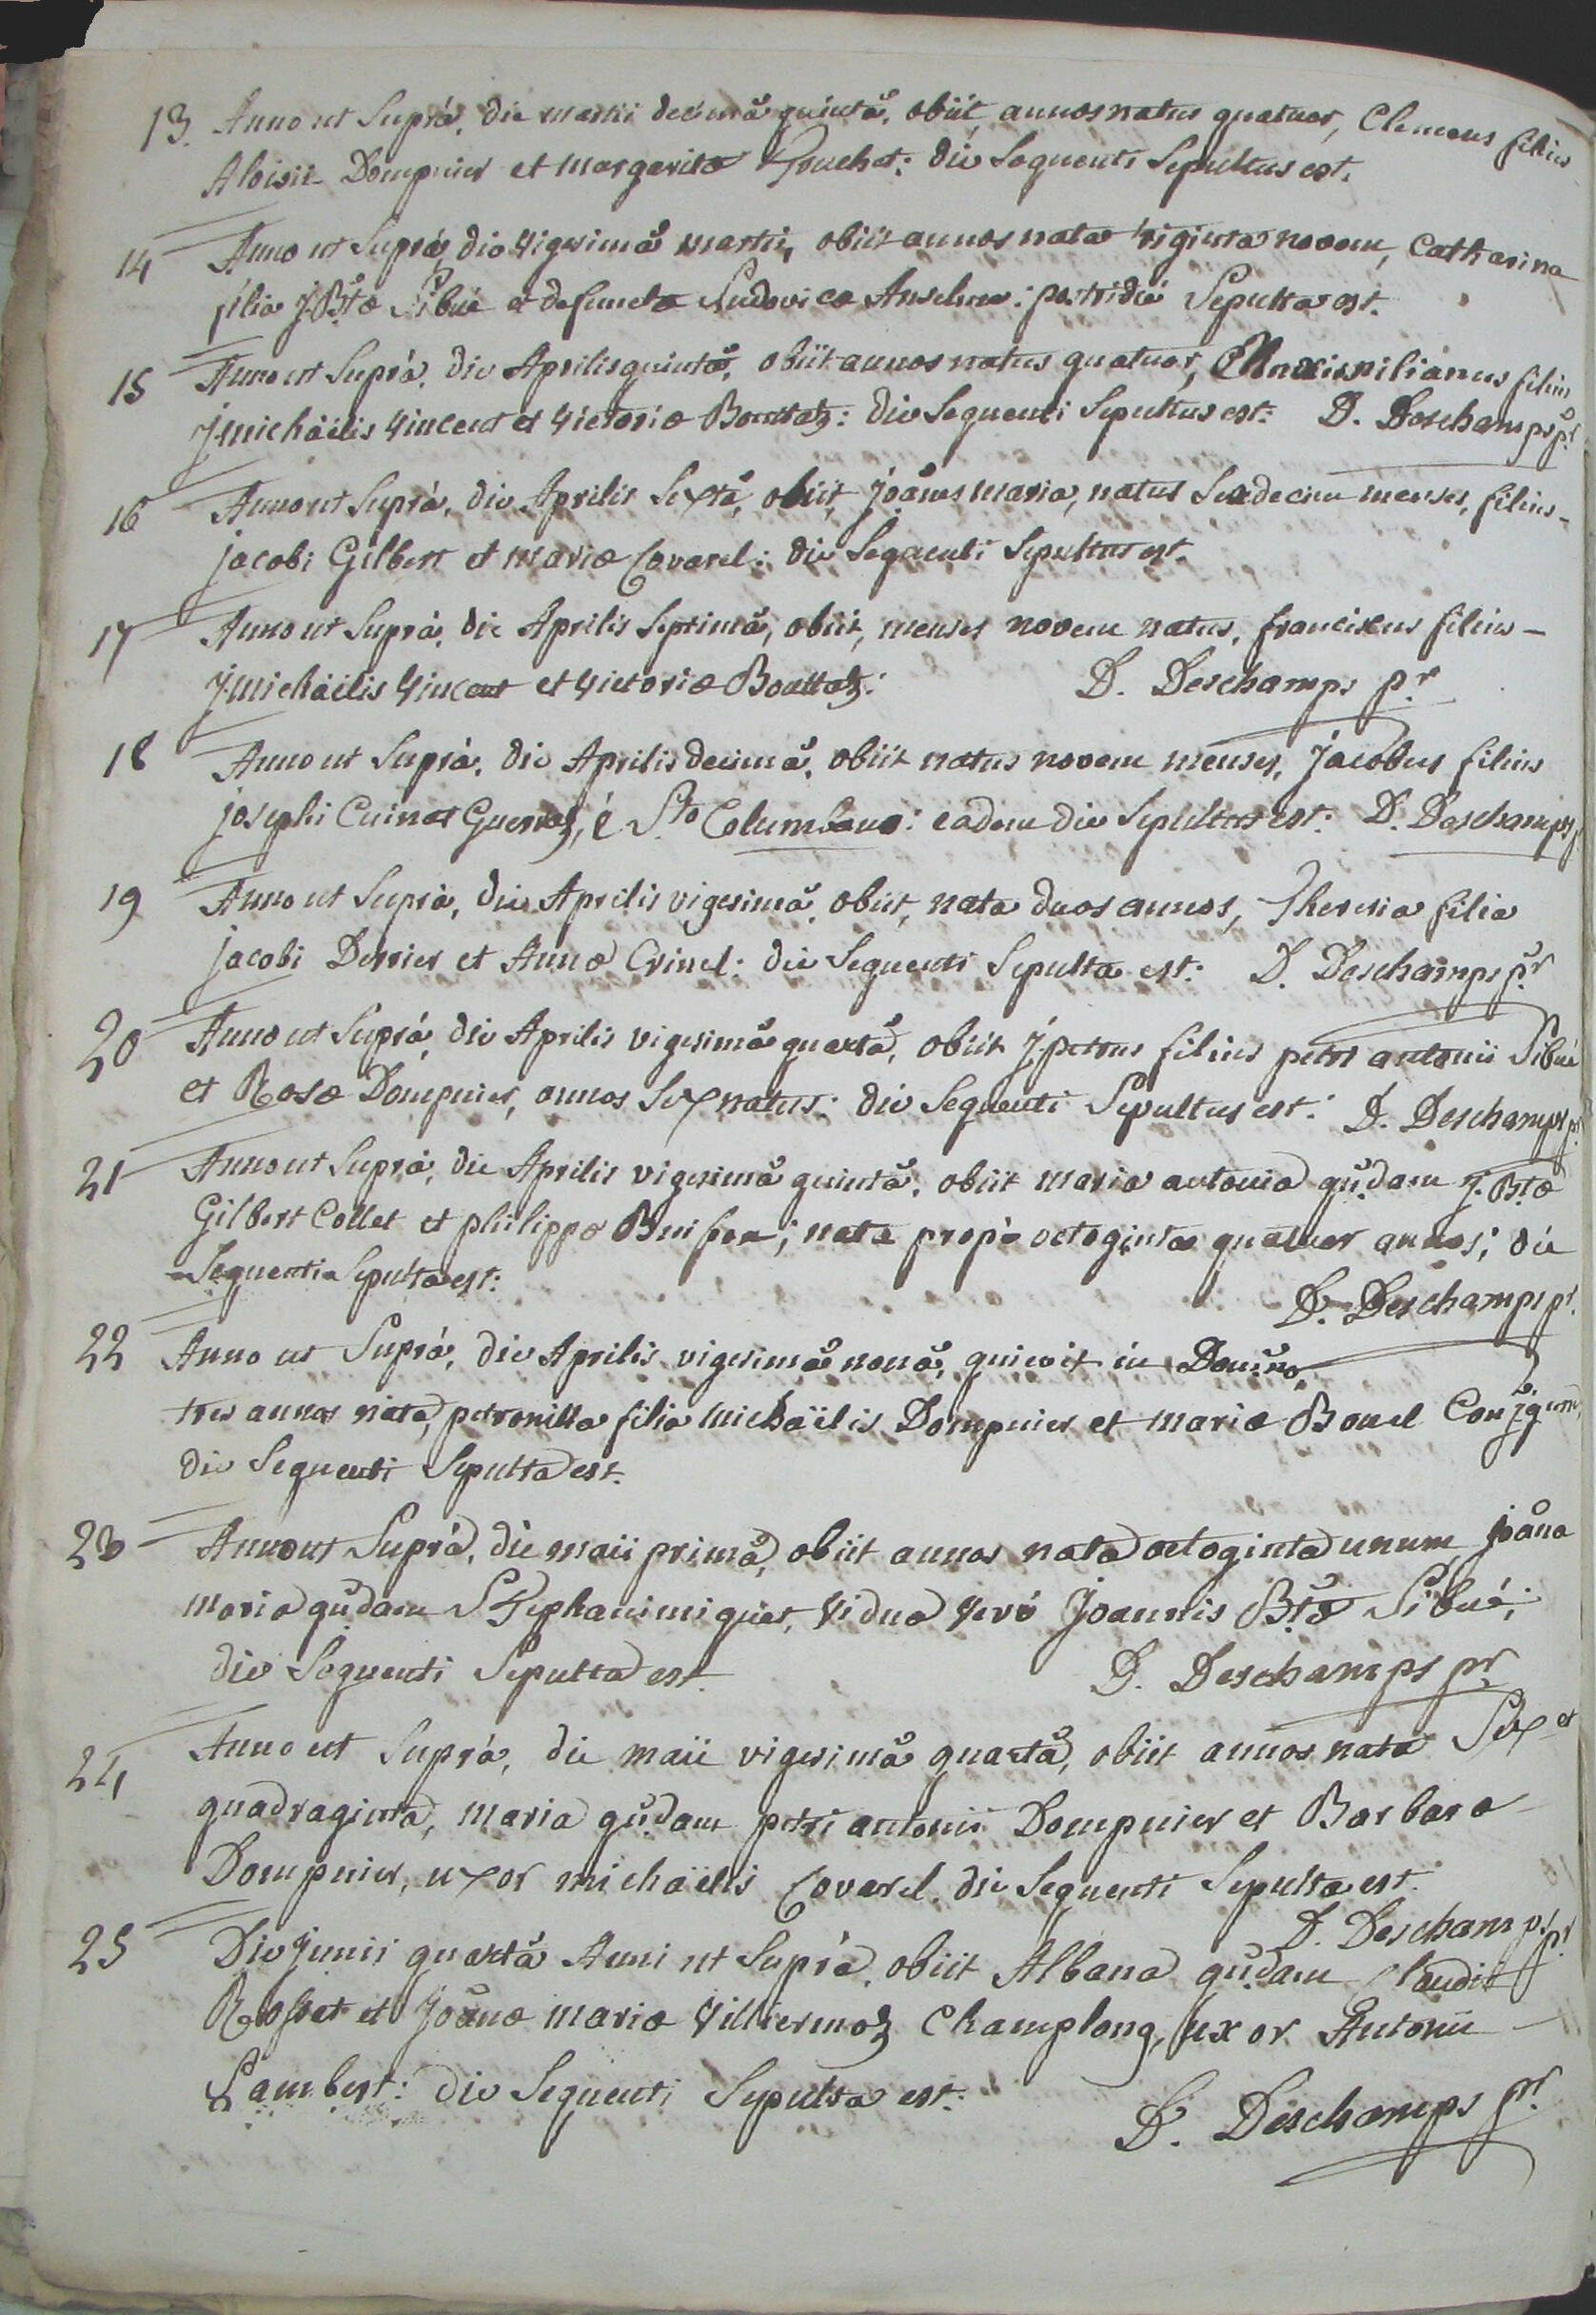 13. Anno ut Suprá, die martii decimâ quintâ, obiit annos natus quatuor, Clemens filius
Aloisii Dompnier et margaritæ Truchet: die Sequenti Sepultus est.
14 Anno ut Suprá, die vigesimâ martii, obiit annos nata triginta novem, Catharina
filia J. Btæ Sibué et defunctæ Ludovicæ Anselme: postridié Sepulta est.
15 Anno ut Suprà, die Aprilis quintâ, obiit annos natus quatuor, Maximilianus filius
J. michäelis Vincent et Victoriæ Bouttaz: die Sequenti Sepultus est: D. Deschamps pr
16 Anno ut Suprà, die Aprilis Sextâ, obiit, Joänes maria, natus Sexdecim menses, filius
jacobi Gilbert et mariæ Covarel: die Sequenti Sepultus est.
17 Anno ut Suprà, die Aprilis Septimâ, obiit, menses novem natus, franciscus filius
J. michäelis Vincent et Victoriæ Bouttaz: D. Deschamps pr
18 Anno ut Suprà, die Aprilis decimâ, obiit natus novem menses, jacobus filius
josephi Cuinat Guerraz, é Sto Columbano: eadem die Sepultus est: D. Deschamps
19 Anno ut Suprà, die Aprilis vigesimâ, obiit, nata duos annos, Theresia filia
jacobi Derrier et Annæ Crinel: die Sequenti Sepulta est: D. Deschamps pr
20 Anno ut Suprá, die Aprilis vigesimâ quartâ, obiit J. petrus filius petri antonii Sibué
et Rosæ Dompnier, annos Sex natus: die Sequenti Sepultus est: D. Deschamps pr
21 Anno ut Suprà, die Aprilis vigesimâ quintâ, obiit maria antonia qudam J. Btæ
Gilbert Collet et philippæ nata propè octoginta quatuor annos; die
Sequenti Sepulta est: D. Deschamps pr
22 Anno ut Suprá, die Aprilis vigesimâ nonâ, quievit in Domino,
tres annos nata, petronilla filia michäelis Dompnier et mariæ Bonel Conjgum,
die Sequenti Sepulta est.
23 Anno ut Suprà, die maii primâ, obiit annos nata octoginta unum, joäna
maria qudam Stephani miguet, vidua veró Joannis Btæ Sibué;
die Sequenti Sepulta est. D. Deschamps pr
24 Anno ut Suprà, die maii vigesimâ quartâ, obiit annos nata Sex et
quadraginta, maria qudam petri antonii Dompnier et Barbara
Dompnier, uxor michäelis Covarel, die Sequenti Sepulta est.
D. Deschamps pr
25 Die Junii quartâ Anni ut Suprà, obiit Albana qudam Claudii
Rosset et joänæ mariæ Villiermoz Champlong, uxor Antonii
Lambert: die Sequenti Sepulta est: D. Deschamps pr.